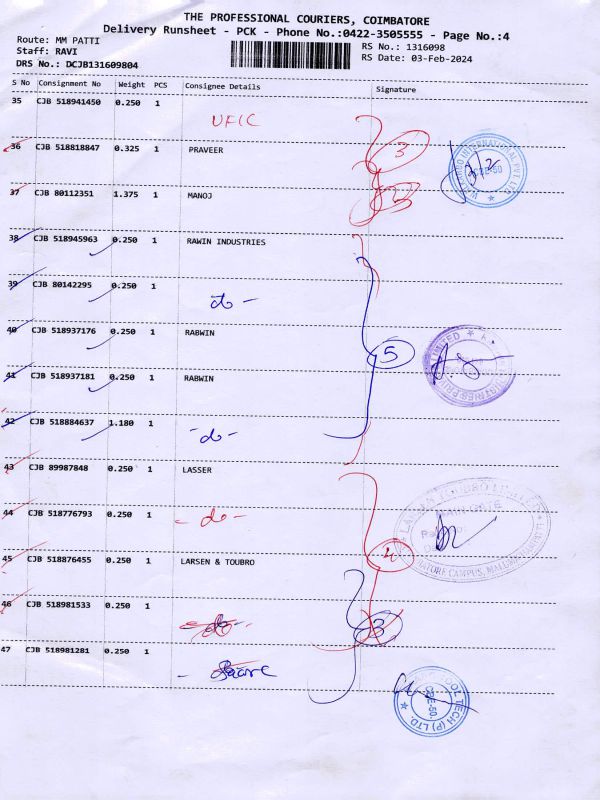 THE PROFESSIONAL COURIERS, COIMBATORE
Delivery Runsheet - PCK - Phone No.:0422-3505555 - Page No.:4
Route: MM PATTI
RS No.: 1316098
Staff: RAVI
RS Date: 03-Feb-2024
DRS No.: DCJB131609804
S No Consignment No Weight PCS Consignee Details Signature
35 CJB 518941450 0.250 1
UFIC
36 CJB 518818847 0.325 1 PRAVEER
3
37 CJB 80112351 1.375 1 MANOJ
38 CJB 518945963 0.250 1 RAWIN INDUSTRIES
39 CJB 80142295 0.250 1
-do-
40 CJB 518937176 0.250 1 RABWIN
5
41 CJB 518937181 0.250 1 RABWIN
42 CJB 518884637 1.180 1
-do-
43 CJB 89987848 0.250 1 LASSER
44 CJB 518776793 0.250 1
-do-
45 CJB 518876455 0.250 1 LARSEN & TOUBRO
4
46 CJB 518981533 0.250 1
-do-
3
47 CJB 518981281 0.250 1